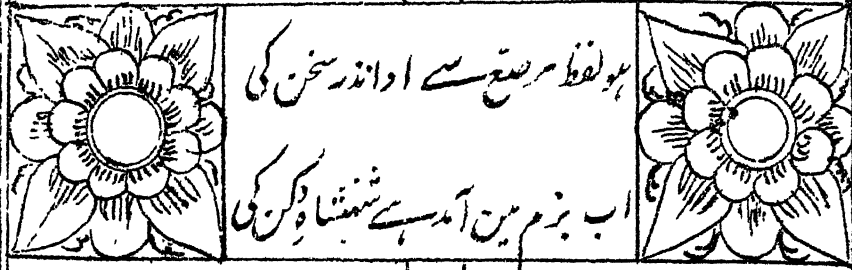 ہو لفظ مرصع سے ادا نذر سخن کی
اب بزم مین آمد ہے شہنشاہِ دکن کی